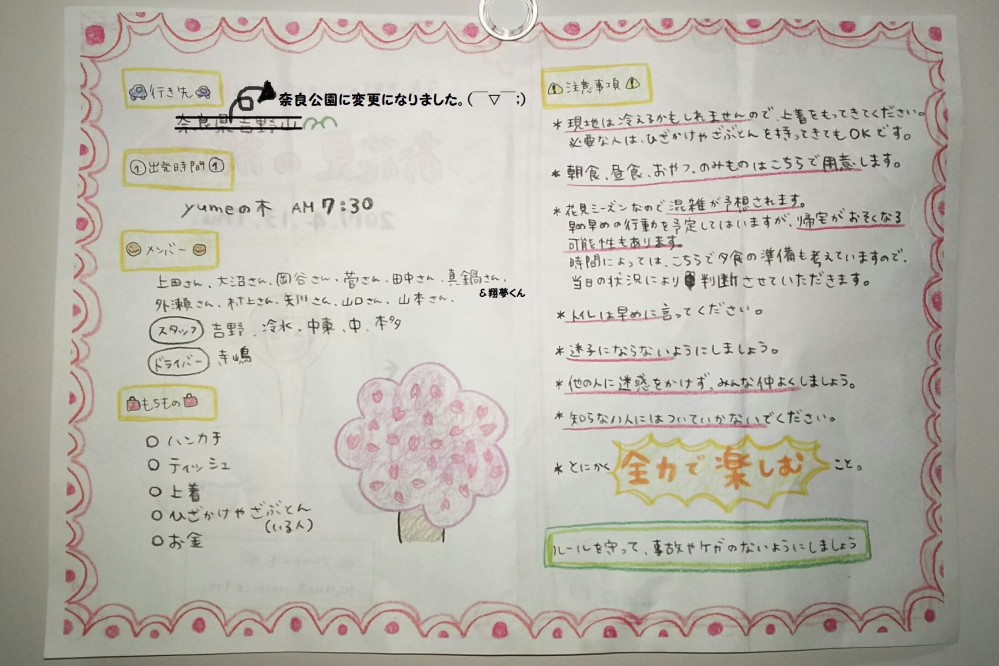 行き先
奈良公園に変更になりました。(￣▽￣;)
奈良県吉野山
出発時間
yumeの木 AM 7:30
メンバー
上田さん、大沼さん、岡谷さん、菅さん、田中さん、真鍋さん、
&翔夢くん
外瀬さん、村上さん、矢川さん、山口さん、山本さん、
スタッフ 吉野、冷水、中東、中、本多
ドライバー 寺嶋
もちもの
○ ハンカチ
○ ティッシュ
○ 上着
○ ひざかけやざぶとん
(いる人)
○ お金
注意事項
*現地は冷えるかもしれませんので、上着をもってきてください。
必要な人は、ひざかけやざぶとんを持ってきてもOKです。
*朝食、昼食、おやつ、のみものはこちらで用意します。
*花見シーズンなので混雑が予想されます。
早め早めの行動を予定してはいますが、帰宅がおそくなる
可能性もあります。
時間によっては、こちらで夕食の準備も考えていますので、
当日の状況により判断させていただきます。
*トイレは早めに言ってください。
*迷子にならないようにしましょう。
*他の人に迷惑をかけず、みんな仲よくしましょう。
*知らない人にはついていかないでください。
*とにかく 全力で楽しむ こと。
ルールを守って、事故やケガのないようにしましょう